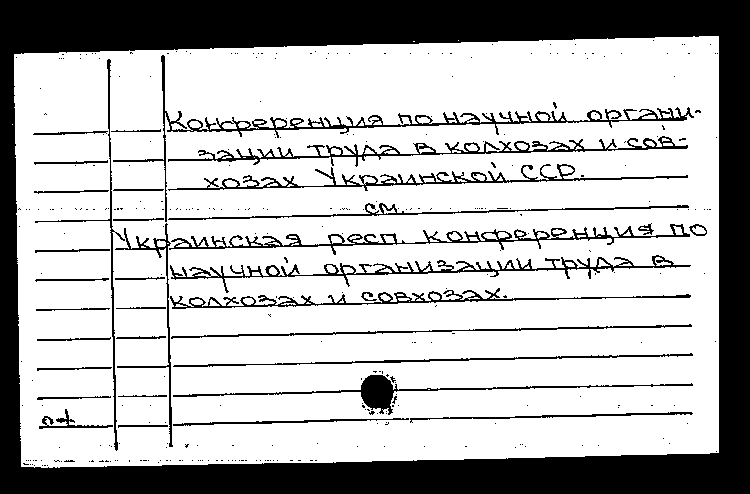 Конференция по научной органи-
зации труда в колхозах и сов-
хозах Украинской ССР.
см.
Украинская респ. конференция по
научной организации труда в
колхозах и совхозах.